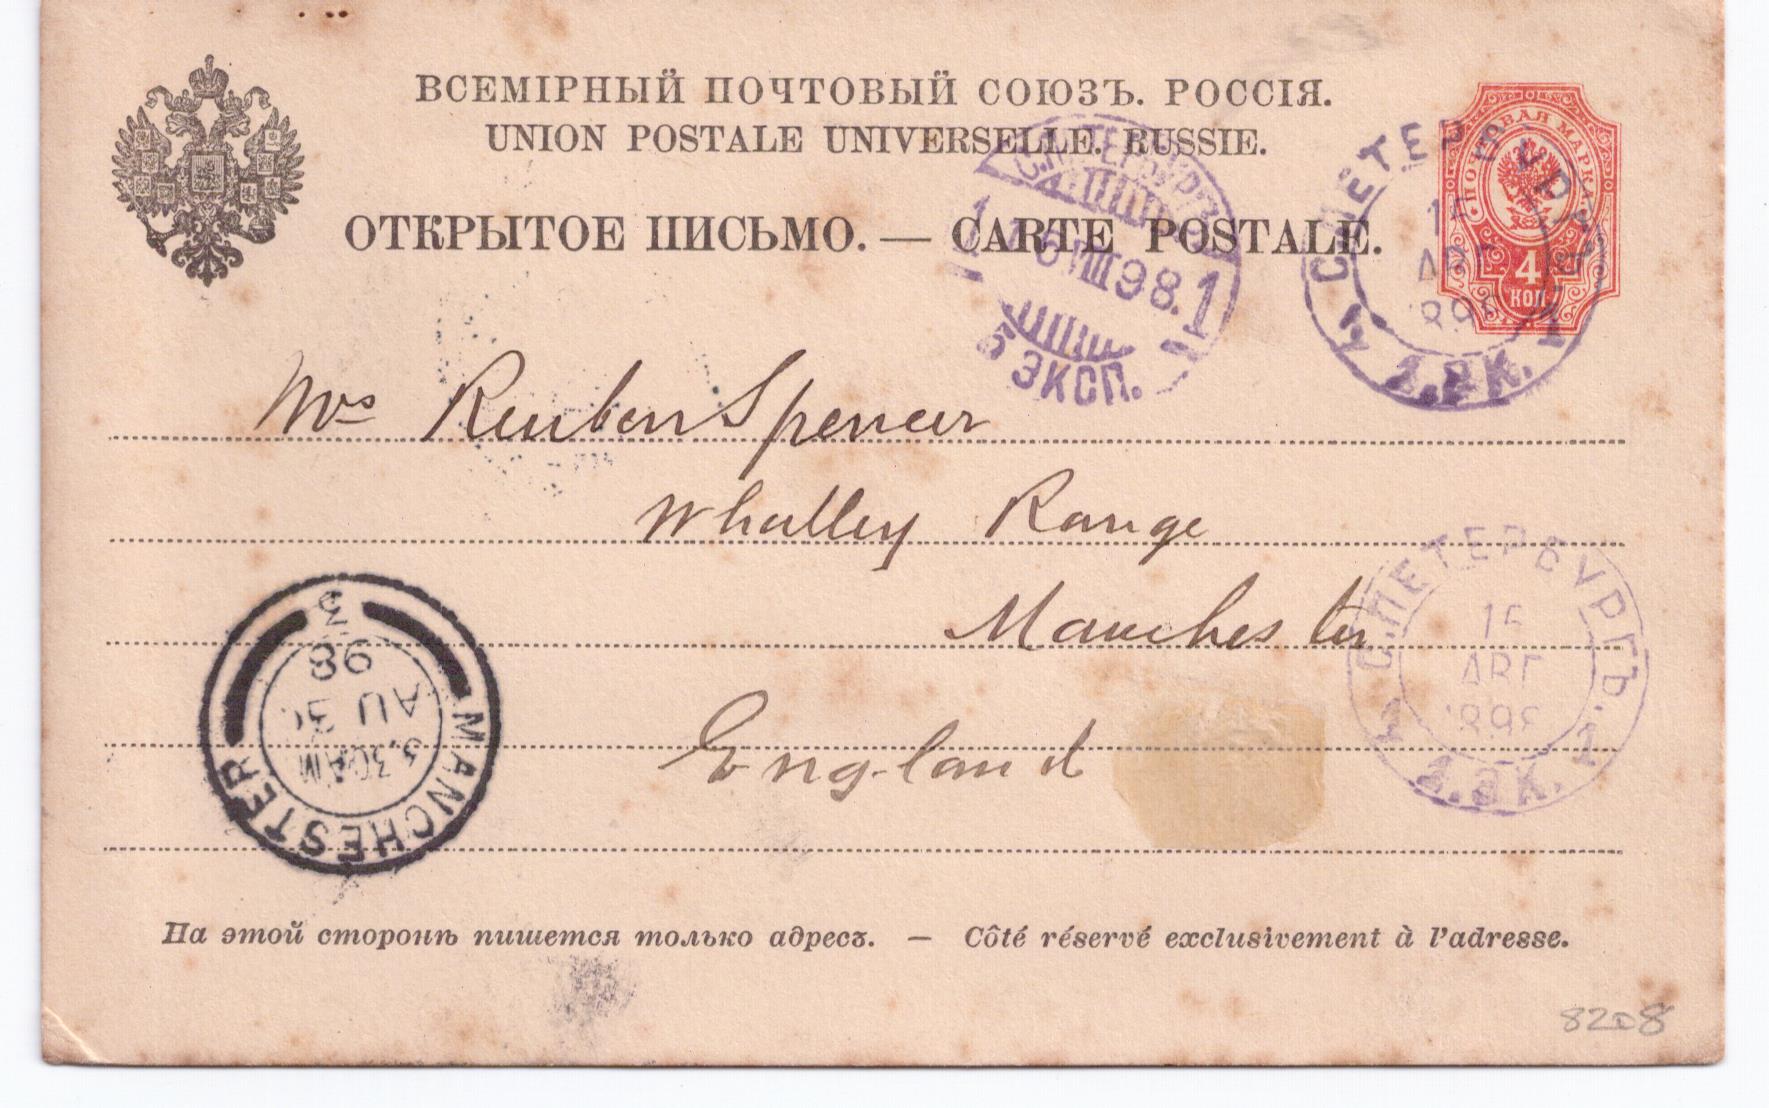 ВСЕМІРНЫЙ ПОЧТОВЫЙ СОЮЗЪ. РОССІЯ.
UNION POSTALE UNIVERSELLE. RUSSIE.
ОТКРЫТОЕ ПИСЬМО. — CARTE POSTALE.
ПОЧТОВАЯ МАРКА
4
КОП.
С.ПЕТЕРБУРГЪ
1 16 VIII 98. 1
5 ЭКСП.
С.ПЕТЕРБУРГЪ
15
АВГ
1898
2.ЭК. 1
Mrs Reuben Spencer
Whalley Range
Manchester
England
С.ПЕТЕРБУРГЪ. 1
15
АВГ
1898
2.ЭК.
MANCHESTER
3.30AM
AU 30
98
3
На этой сторонѣ пишется только адресъ. — Côté réservé exclusivement à l'adresse.
8208